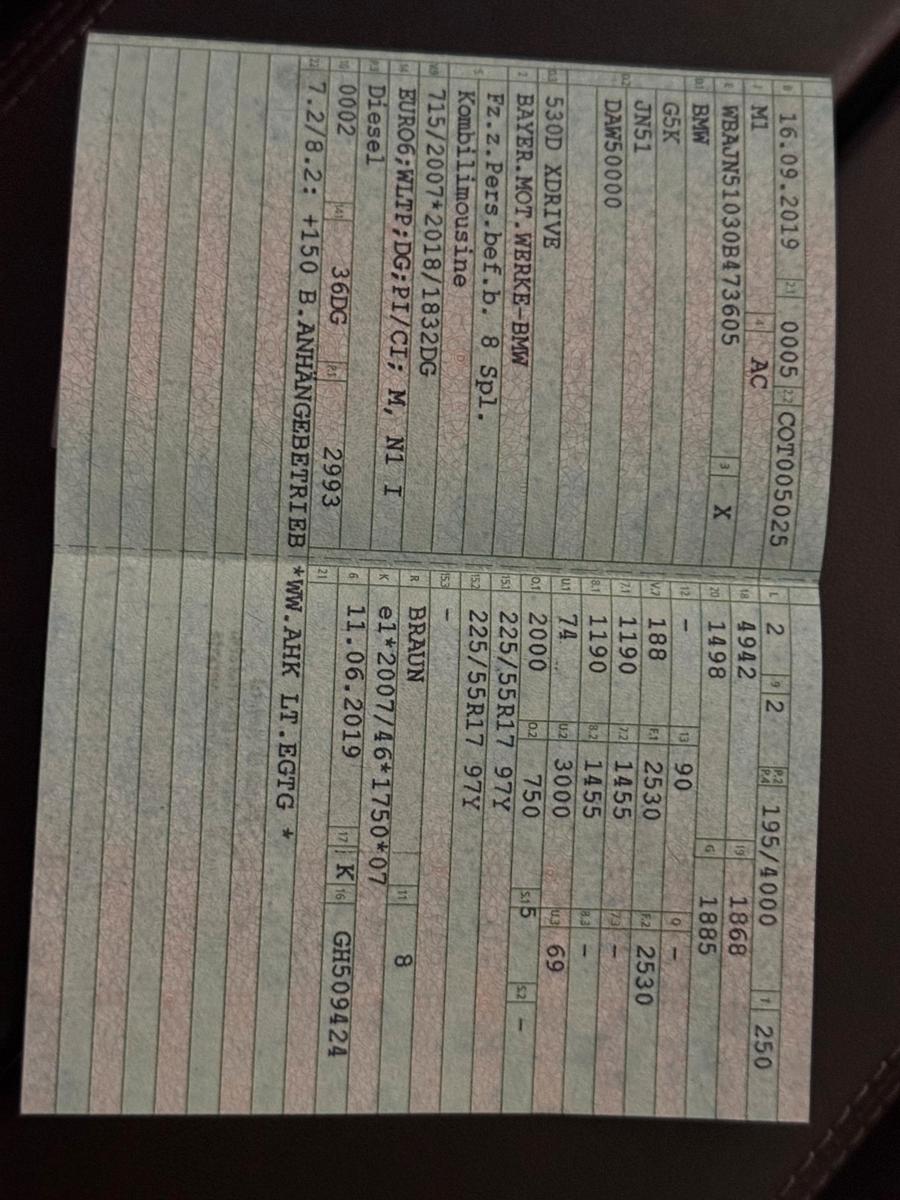 B 16.09.2019 2.1 0005 2.2 COT005025
J M1 4 AC
E WBAJN51030B473605 3 X
D.1 BMW
D.2 G5K
JN51
DAW50000
D.3 530D XDRIVE
2 BAYER.MOT.WERKE-BMW
5 Fz.z.Pers.bef.b. 8 Spl.
Kombilimousine
V.9 715/2007*2018/1832DG
14 EURO6;WLTP;DG;PI/CI; M, N1 I
P.3 Diesel
10 0002 14.1 36DG P.1 2993
22 7.2/8.2: +150 B.ANHÄNGEBETRIEB *WW.AHK LT.EGTG *
L 2 9 2 P.2 P.4 195/4000 T 250
18 4942 19 1868
20 1498 G 1885
12 – 13 90 Q –
V.7 188 F.1 2530 F.2 2530
7.1 1190 7.2 1455 7.3 –
8.1 1190 8.2 1455 8.3 –
U.1 74 U.2 3000 U.3 69
O.1 2000 O.2 750 S.1 5 S.2 –
15.1 225/55R17 97Y
15.2 225/55R17 97Y
15.3 –
R BRAUN 11 8
K e1*2007/46*1750*07
6 11.06.2019 17 K 16 GH509424
21